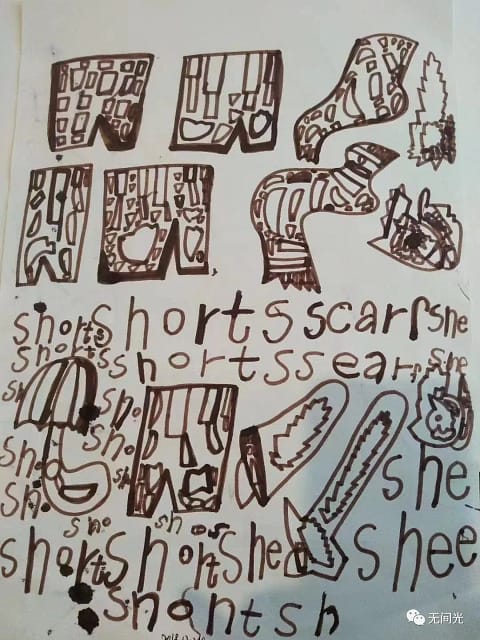 shorts shorts scarf she
shorts shorts scarf she
sh sho
sho sho sh she
sho
sho shos shee
shorts short shee
shonts h
无间光